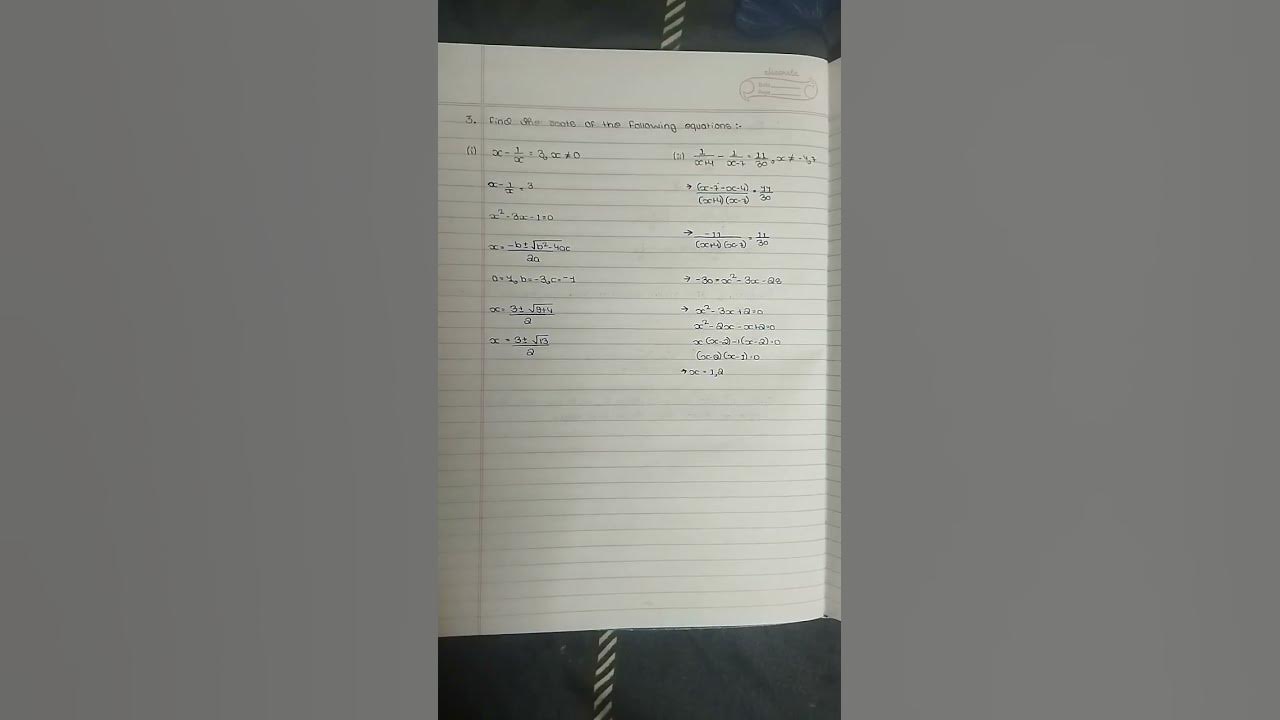 classmate
Date
Page
3. Find the roots of the following equations :-
(i) x - 1/x = 3, x ≠ 0
x - 1/x = 3
x² - 3x - 1 = 0
x = -b ± √b² - 4ac / 2a
a = 1, b = -3, c = -1
x = 3 ± √9+4 / 2
x = 3 ± √13 / 2
(ii) 1/x+4 - 1/x-7 = 11/30, x ≠ -4, 7
→ (x-7-x-4)/(x+4)(x-7) = 11/30
→ -11/(x+4)(x-7) = 11/30
→ -30 = x² - 3x - 28
→ x² - 3x + 2 = 0
x² - 2x - x + 2 = 0
x(x-2) - 1(x-2) = 0
(x-2)(x-1) = 0
→ x = 1, 2